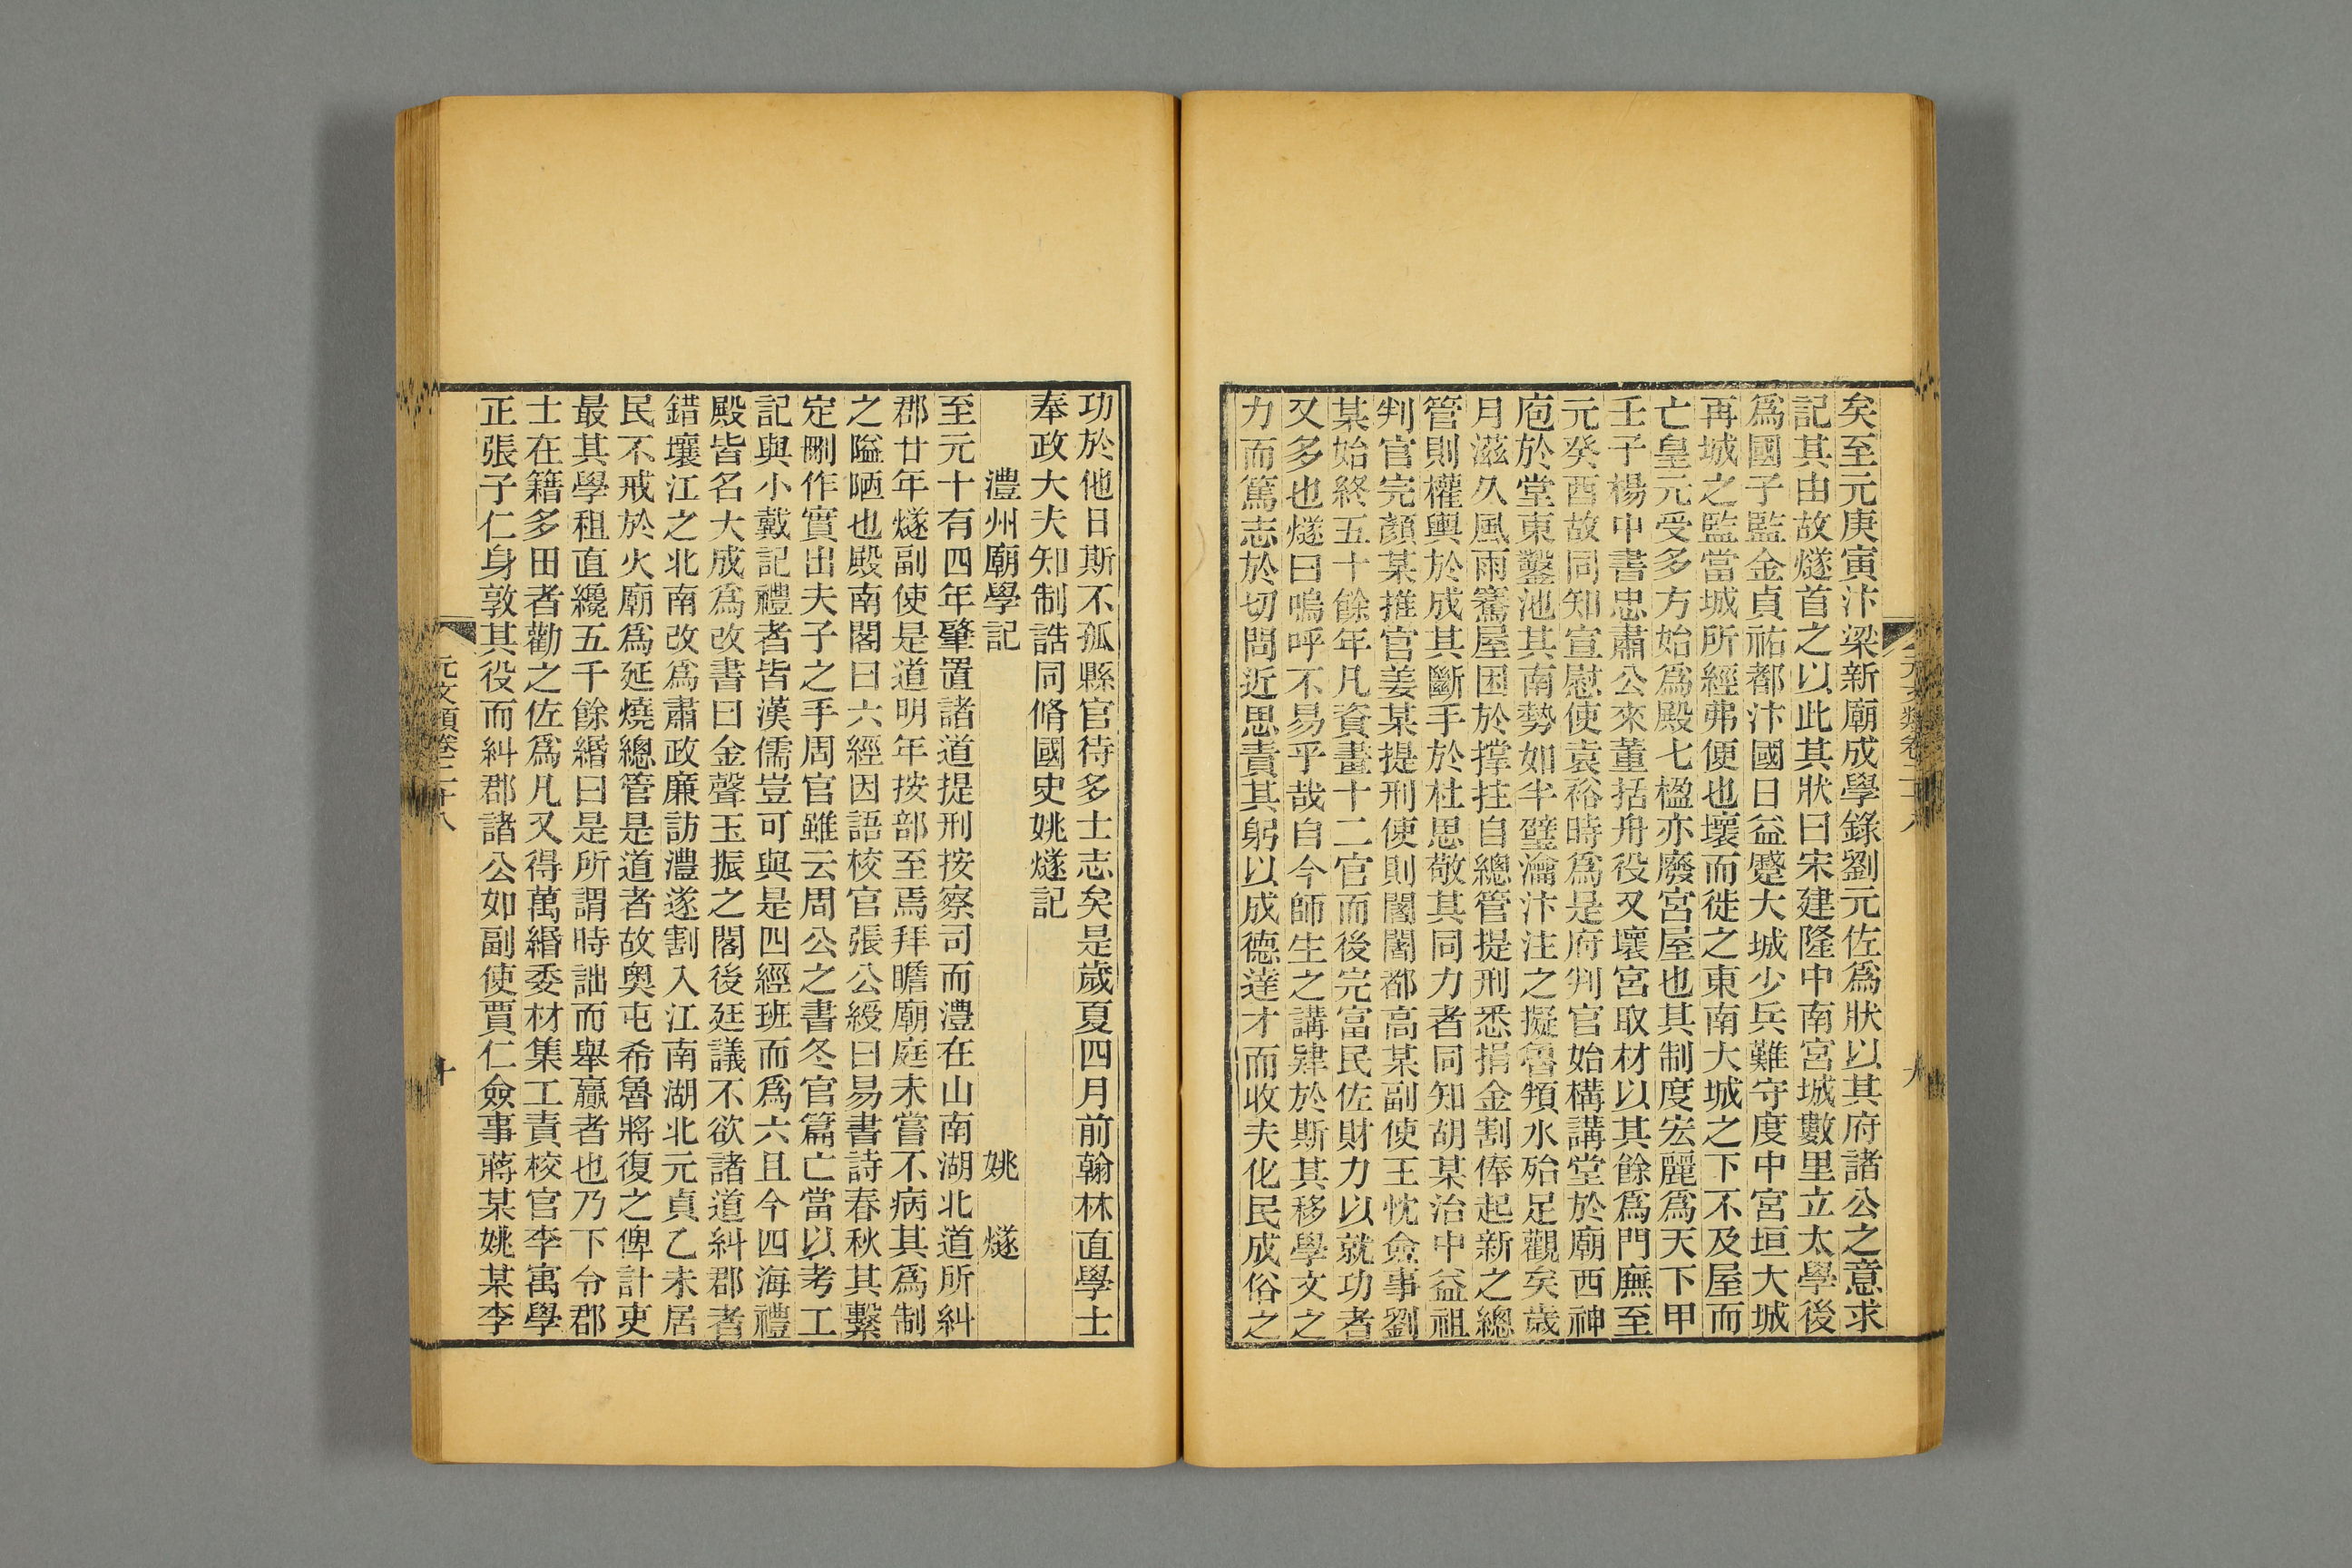 矣至元庚寅汴梁新廟成學錄劉元佐爲狀以其府諸公之意求
記其由故燧首之以此其狀曰宋建隆中南宮城數里立太學後
爲國子監金貞祐都汴國日益蹙大城少兵難守度中宮垣大城
再城之監當城所經弗便也壞而徙之東南大城之下不及屋而
亡皇元受多方始爲殿七楹亦廢宮屋也其制度宏麗爲天下甲
壬子楊中書忠肅公來董括舟役又壞宮取材以其餘爲門廡至
元癸酉故同知宣慰使袁裕時爲是府判官始構講堂於廟西神
庖於堂東鑿池其南勢如半璧瀹汴注之擬魯頖水殆足觀矣歲
月滋久風雨騫屋困於撑拄自總管提刑悉捐金割俸起新之總
管則權輿於成其斷手於杜思敬其同力者同知胡某治中益祖
判官完顏某推官姜某提刑使則闍闍都高某副使王忱僉事劉
某始終五十餘年凡資畫十二官而後完富民佐財力以就功者
又多也燧曰嗚呼不易乎哉自今師生之講肄於斯其移學文之
力而篤志於切問近思責其躬以成德達才而收夫化民成俗之
功於他日斯不孤縣官待多士志矣是歲夏四月前翰林直學士
奉政大夫知制誥同脩國史姚燧記
澧州廟學記 姚燧
至元十有四年肇置諸道提刑按察司而澧在山南湖北道所糾
郡廿年燧副使是道明年按部至焉拜瞻廟庭未嘗不病其爲制
之隘陋也殿南閣曰六經因語校官張公綬曰易書詩春秋其繫
定刪作實出夫子之手周官雖云周公之書冬官篇亡當以考工
記與小戴記禮者皆漢儒豈可與是四經班而爲六且今四海禮
殿皆名大成爲改書曰金聲玉振之閣後廷議不欲諸道糾郡者
錯壤江之北南改爲肅政廉訪澧遂割入江南湖北元貞乙未居
民不戒於火廟爲延燒總管是道者故奧屯希魯將復之俾計吏
最其學租直纔五千餘緡曰是所謂時詘而舉贏者也乃下令郡
士在籍多田者勸之佐爲凡又得萬緡委材集工責校官李寓學
正張子仁身敦其役而糾郡諸公如副使賈仁僉事蔣某姚某李
元文類卷二十八
十